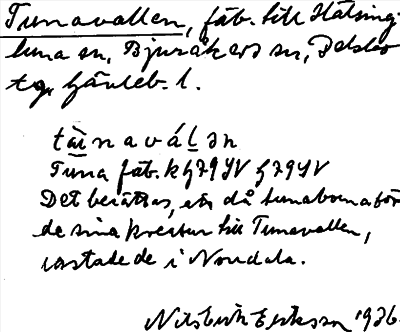 Tunavallen, fäb. till Hälsing-
tuna sn, Bjuråkers sn, Delsbo
tg, Gävleb. l.
tu̲naváḷən
Tuna fäb. k
Det berättas, att då tunaborna för
de sina kreatur till Tunavallen,
rastade de i Norrdala.
Eriksson 1936.